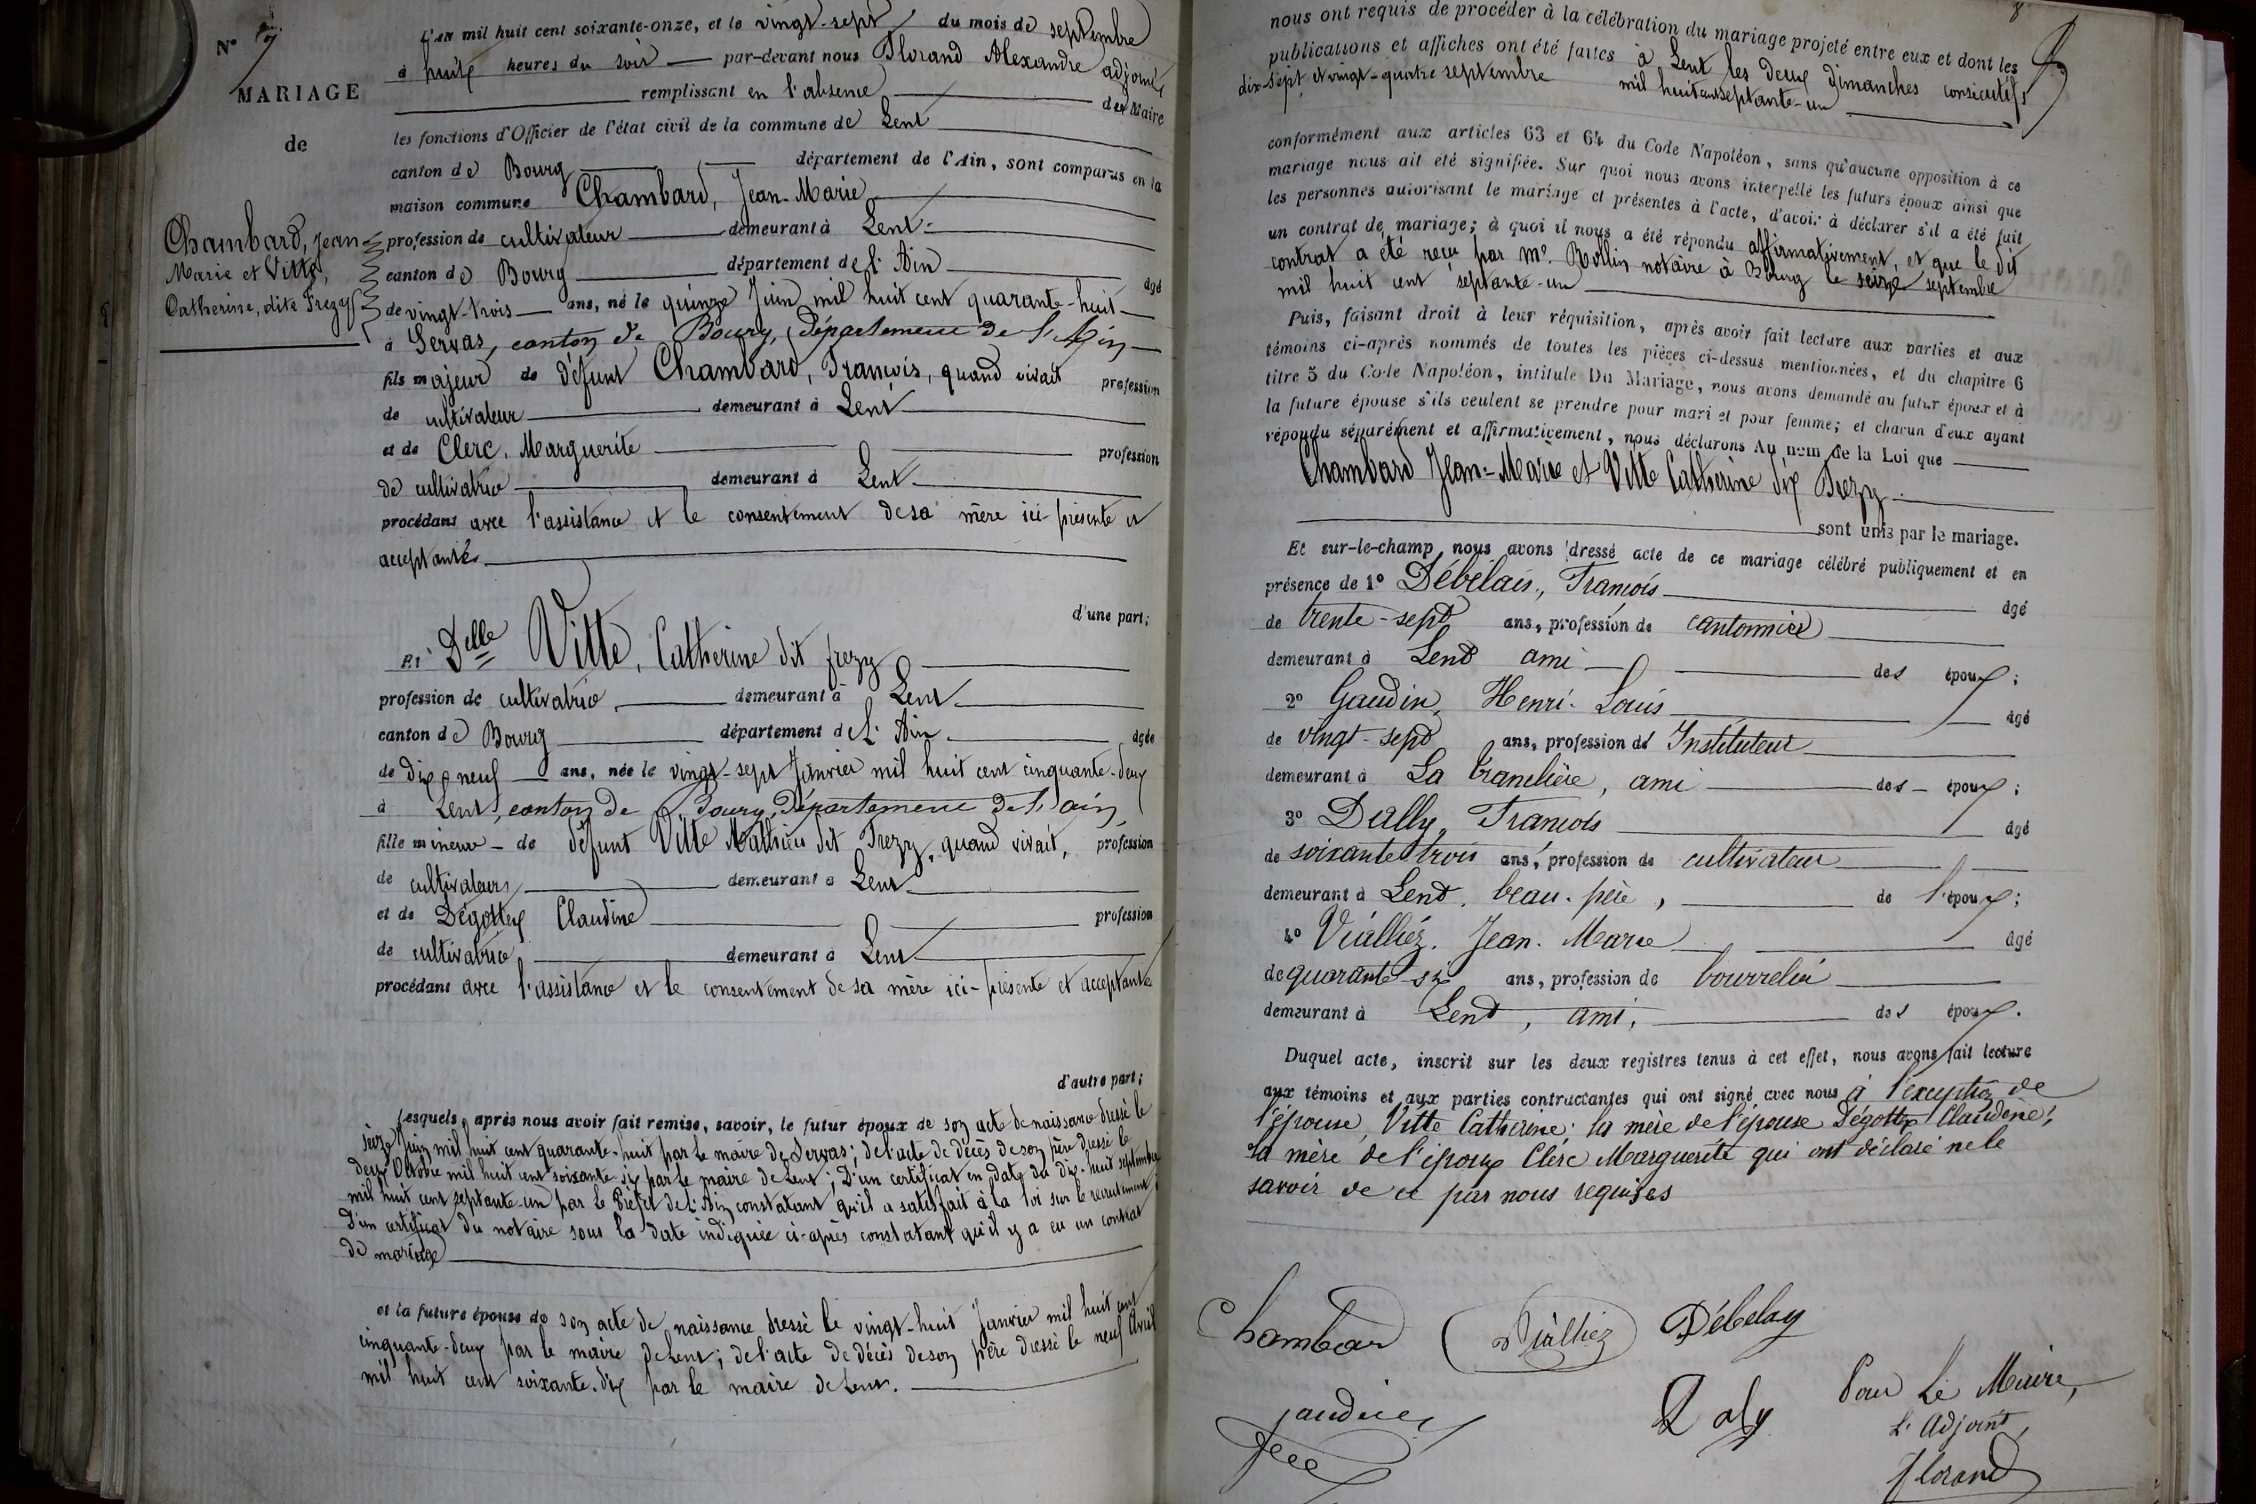 N° 7
MARIAGE
de
Chambard, Jean-
Marie et Vitte,
Catherine, dite Frezy
L'an mil huit cent soixante-onze, et le vingt-sept du mois de septembre
à huit heures du soir par-devant nous Florand Alexandre adjoint
remplissant en l'absence du Maire
les fonctions d'Officier de l'état civil de la commune de Lent
canton de Bourg département de l'Ain, sont comparus en la
maison commune Chambard, Jean-Marie
profession de cultivateur demeurant à Lent
canton de Bourg département de l'Ain âgé
de vingt-trois ans, né le quinze Juin mil huit cent quarante-huit
à Servas, canton de Bourg, département de l'Ain
fils majeur de défunt Chambard, François, quand vivait profession
de cultivateur demeurant à Lent
et de Clerc, Marguerite profession
de cultivatrice demeurant à Lent
procédant avec l'assistance et le consentement de sa mère ici présente et
acceptante
d'une part;
Et Delle Vitte, Catherine dit frezy
profession de cultivatrice demeurant à Lent
canton de Bourg département de l'Ain âgée
de dix neuf ans, née le vingt-sept Janvier mil huit cent cinquante-deux
à Lent, canton de Bourg, Département de l'ain
fille mineure de défunt Vitte Mathieu dit Frezy, quand vivait, profession
de cultivateur demeurant à Lent
et de Dégottex Claudine profession
de cultivatrice demeurant à Lent
procédant avec l'assistance et le consentement de sa mère ici-présente et acceptante
d'autre part;
Lesquels, après nous avoir fait remise, savoir, le futur époux de son acte de naissance dressé le
seize Juin mil huit cent quarante-huit par le maire de Servas; de l'acte de décès de son père dressé le
deux Octobre mil huit cent soixante-six par le maire de Lent; D'un certificat en date du dix-huit septembre
mil huit cent septante-un par le Préfet de l'Ain constatant qu'il a satisfait à la loi sur le recrutement
D'un certificat du notaire sous la date indiquée ci-après constatant qu'il y a eu un contrat
de mariage
et la future épouse de son acte de naissance dressé le vingt-huit Janvier mil huit cent
cinquante-deux par le maire de Lent; de l'acte de décès de son père dressé le neuf Avril
mil huit cent soixante-dix par le maire de Lent.
8
nous ont requis de procéder à la célébration du mariage projeté entre eux et dont les
publications et affiches ont été faites à Lent les deux dimanches consécutifs
dix-sept et vingt-quatre septembre mil huit cent septante-un
conformément aux articles 63 et 64 du Code Napoléon, sans qu'aucune opposition à ce
mariage nous ait été signifiée. Sur quoi nous avons interpellé les futurs époux ainsi que
les personnes autorisant le mariage et présentes à l'acte, d'avoir à déclarer s'il a été fait
un contrat de mariage; à quoi il nous a été répondu affirmativement, et que le dit
contrat a été reçu par Me. Rollin notaire à Bourg le seize septembre
mil huit cent septante-un
Puis, faisant droit à leur réquisition, après avoir fait lecture aux parties et aux
témoins ci-après nommés de toutes les pièces ci-dessus mentionnées, et du chapitre 6
titre 5 du Code Napoléon, intitulé Du Mariage, nous avons demandé au futur époux et à
la future épouse s'ils veulent se prendre pour mari et pour femme; et chacun d'eux ayant
répondu séparément et affirmativement, nous déclarons Au nom de la Loi que
Chambard Jean-Marie et Vitte Catherine dit Frezy
sont unis par le mariage.
Et sur-le-champ nous avons dressé acte de ce mariage célébré publiquement et en
présence de 1° Débelais, François âgé
de trente-sept ans, profession de cantonnier
demeurant à Lent ami des époux;
2° Gaudin, Henri-Louis âgé
de vingt-sept ans, profession d' Instituteur
demeurant à La tranclière, ami des époux;
3° Dally, François âgé
de soixante trois ans, profession de cultivateur
demeurant à Lent, beau-père, de l'époux;
4° Viallièz, Jean-Marie âgé
de quarante-six ans, profession de bourrelier
demeurant à Lent, ami, des époux.
Duquel acte, inscrit sur les deux registres tenus à cet effet, nous avons fait lecture
aux témoins et aux parties contractantes qui ont signé avec nous à l'exception de
l'épouse, Vitte Catherine; la mère de l'épouse Dégottex Claudine;
la mère de l'époux Clerc Marguerite qui ont déclaré ne le
savoir de ce par nous requises
Chambar Vialliez Débelay
gaudin Daly Pour Le Maire,
L'Adjoint,
florand